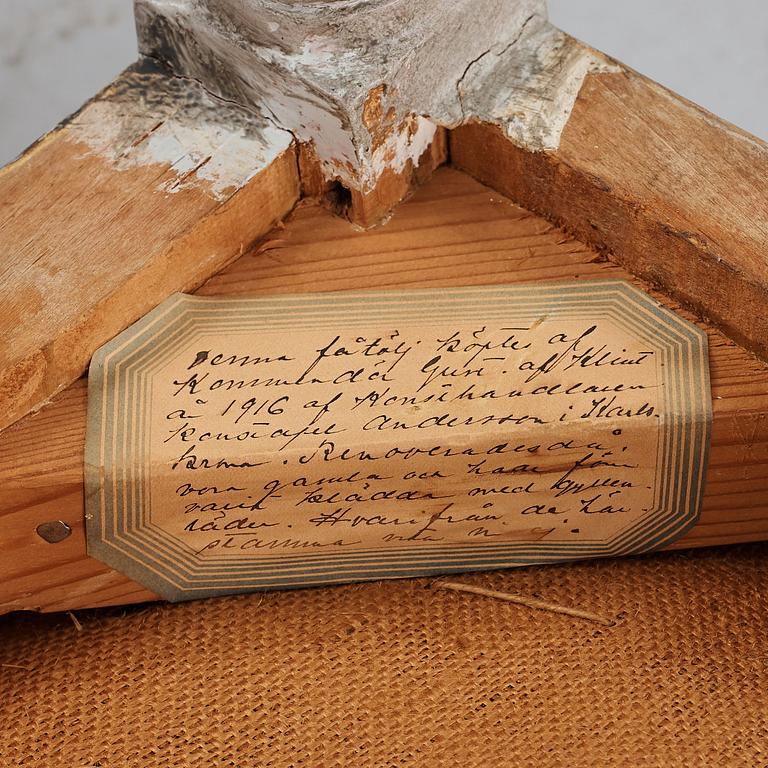 Denna fåtölj köptes af
Kommendör Gust. af Klint
år 1916 af Konsthandlaren
Konstapel Andersson i Karls-
krona. Renoverades då,
voro gamla och hade förr
varit klädda med gyllen-
läder. Hvarifrån de här-
stamma vet n ej.